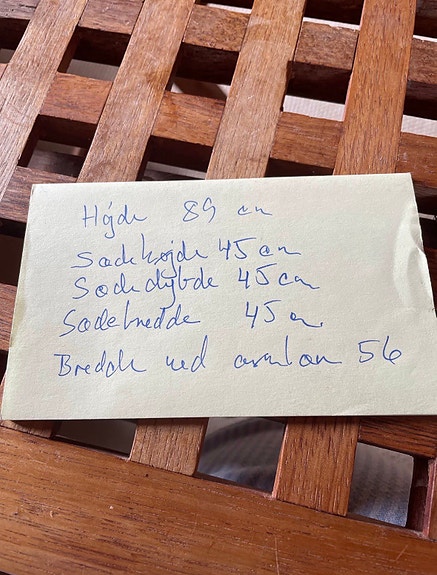 Højde 89 cm
Sædehøjde 45 cm
Sædedybde 45 cm
Sædebredde 45 cm
Bredde ved armlæn 56